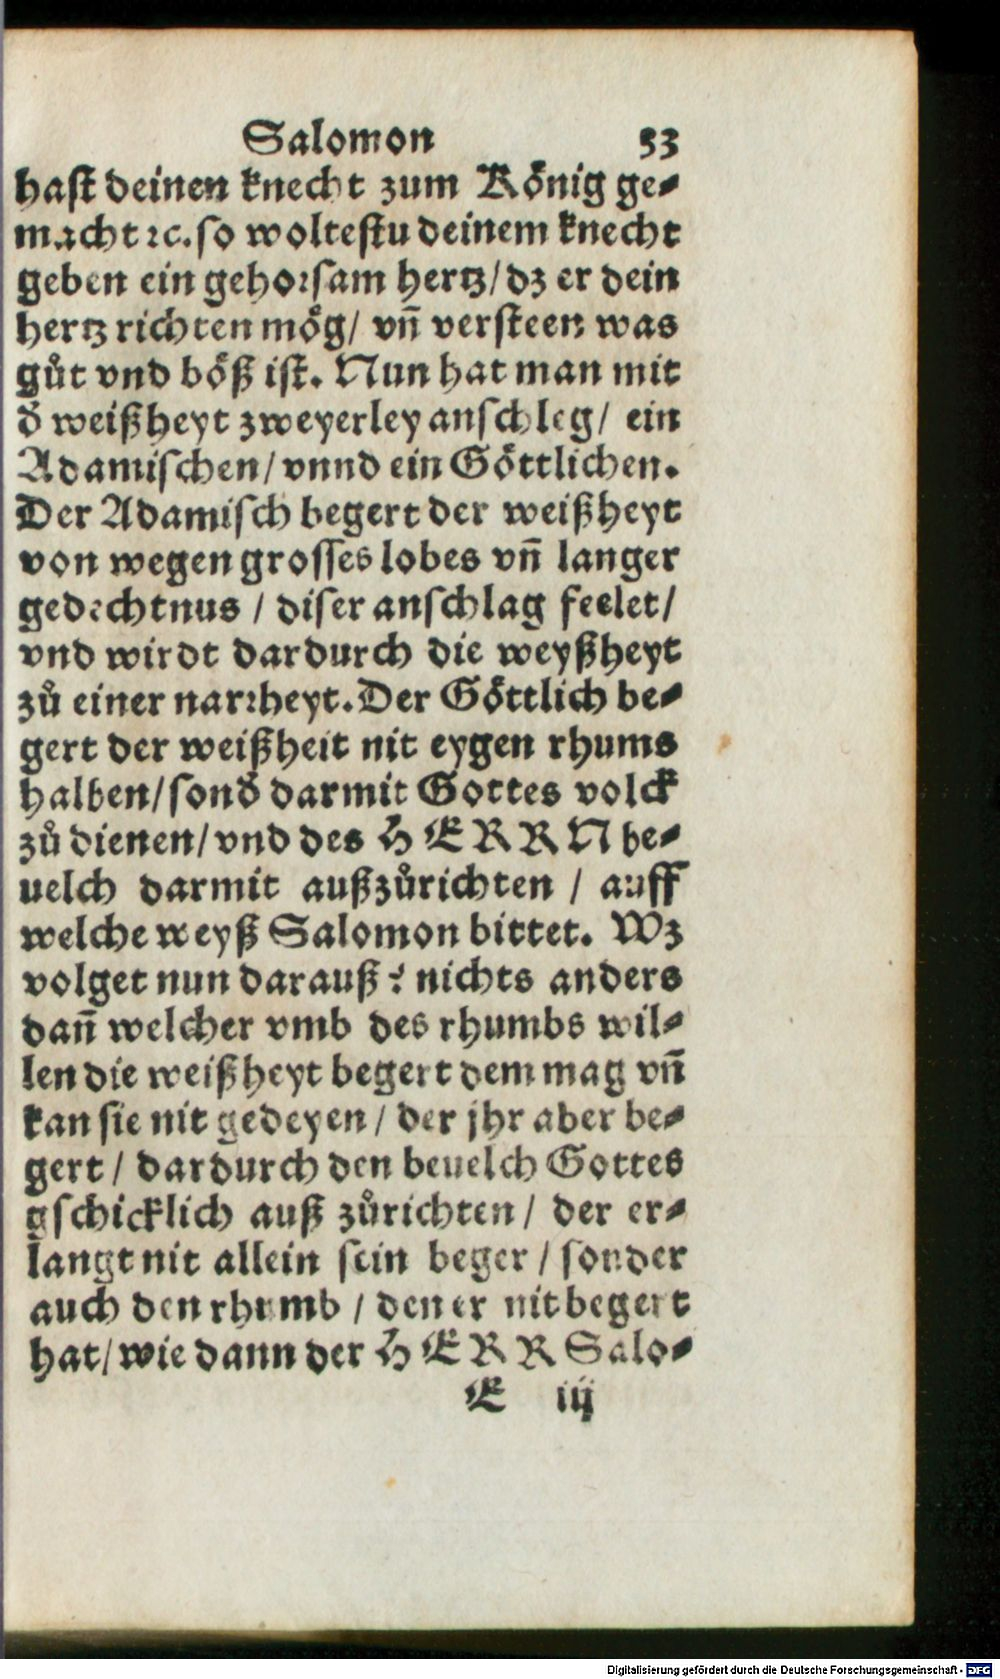 Salomon 53
hast deinen knecht zum König ge⸗
macht ꝛc. so woltestu deinem knecht
geben ein gehoꝛsam hertz / dz er dein
hertz richten mög / vñ versteen was
gůt vnd böß ist. Nun hat man mit
d̕ weißheyt zweyerley anschleg / ein
Adamischen / vnnd ein Göttlichen.
Der Adamisch begert der weißheyt
von wegen grosses lobes vñ langer
gedechtnus / diser anschlag feelet /
vnd wirdt dardurch die weyßheyt
zů einer narꝛheyt. Der Göttlich be⸗
gert der weißheit nit eygen rhums
halben / sond̕ darmit Gottes volck
zů dienen / vnd des HERRN be⸗
uelch darmit außzůrichten / auff
welche weyß Salomon bittet. Wz
volget nun darauß? nichts anders
dañ welcher vmb des rhumbs wil⸗
len die weißheyt begert dem mag vñ
kan sie nit gedeyen / der jhr aber be⸗
gert / dardurch den beuelch Gottes
gschicklich auß zůrichten / der er⸗
langt nit allein sein beger / sonder
auch den rhumb / den er nit begert
hat / wie dann der HERR Salo⸗
E iij
Digitalisierung gefördert durch die Deutsche Forschungsgemeinschaft - DFG